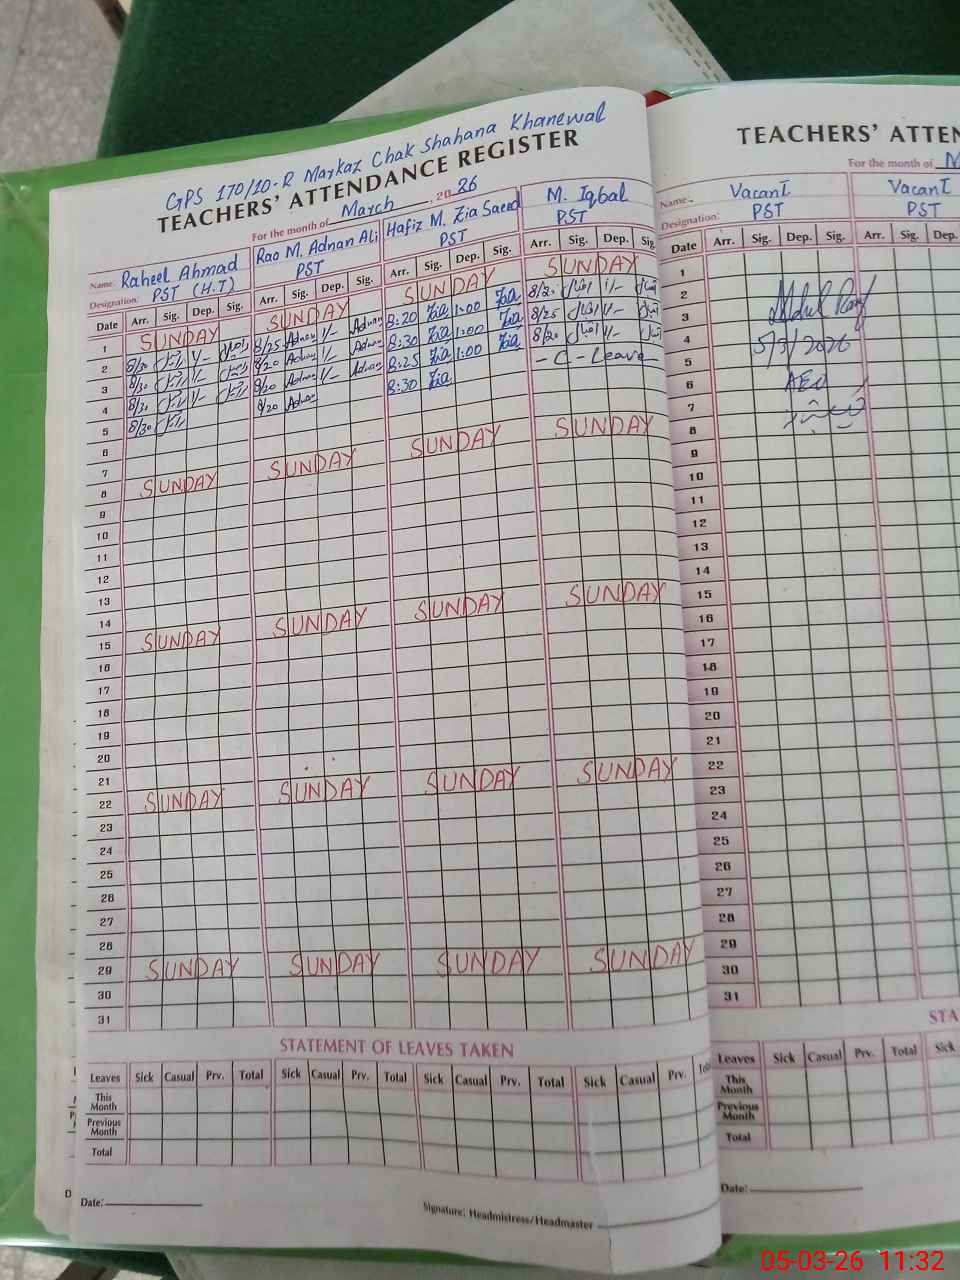 GPS 170/10-R Markaz Chak Shahana Khanewal
TEACHERS' ATTENDANCE REGISTER
For the month of March 2026
Name: Raheel Ahmad Rao M. Adnan Ali Hafiz M. Zia Saeed M. Iqbal
Designation: PST (H.T) PST PST PST
Date Arr. Sig. Dep. Sig. Arr. Sig. Dep. Sig. Arr. Sig. Dep. Sig. Arr. Sig. Dep. Sig.
1 SUNDAY SUNDAY SUNDAY SUNDAY
2 8/30 1/- 8/25 Adnan 1/- Adnan 8:20 Zia 1:00 Zia 1/-
3 8/30 1/- 8/20 Adnan 1/- Adnan 8:30 Zia 1:00 Zia 8/25 1/-
4 8/30 1/- 8/20 Adnan 1/- Adnan 8:25 Zia 1:00 Zia 8/20 1/-
5 8/30 8/20 Adnan 8:30 Zia - C - Leave -
6
7
8 SUNDAY SUNDAY SUNDAY SUNDAY
9
10
11
12
13
14
15 SUNDAY SUNDAY SUNDAY SUNDAY
16
17
18
19
20
21
22 SUNDAY SUNDAY SUNDAY SUNDAY
23
24
25
26
27
28
29 SUNDAY SUNDAY SUNDAY SUNDAY
30
31
STATEMENT OF LEAVES TAKEN
Leaves Sick Casual Prv. Total Sick Casual Prv. Total Sick Casual Prv. Total Sick Casual Prv. Total
This Month
Previous Month
Total
Date:
Signature: Headmistress/Headmaster
TEACHERS' ATTEN
For the month of M
Name: Vacant Vacant
Designation: PST PST
Date Arr. Sig. Dep. Sig. Arr. Sig. Dep.
1
2
3
4 5/3/2026
5
6 AEO
7
8
9
10
11
12
13
14
15
16
17
18
19
20
21
22
23
24
25
26
27
28
29
30
31
STA
Leaves Sick Casual Prv. Total Sick
This Month
Previous Month
Total
Date:
05-03-26 11:32